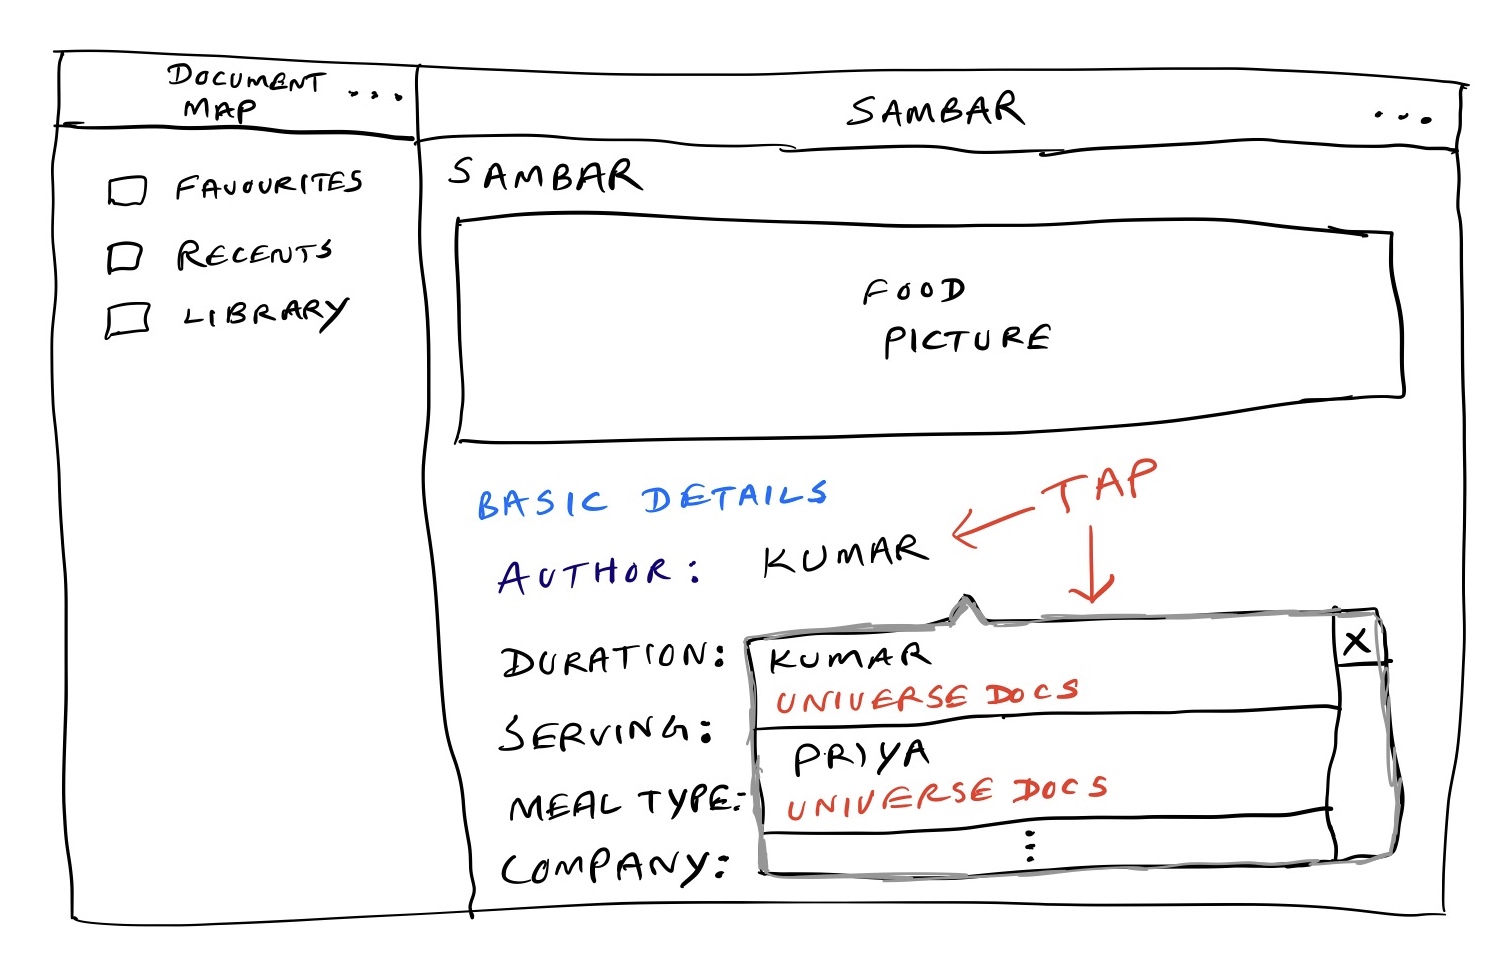 DOCUMENT
MAP
...
FAVOURITES
RECENTS
LIBRARY
SAMBAR
...
SAMBAR
FOOD
PICTURE
BASIC DETAILS
TAP
AUTHOR: KUMAR
DURATION:
SERVING:
MEAL TYPE:
COMPANY:
KUMAR
X
UNIVERSE DOCS
PRIYA
UNIVERSE DOCS